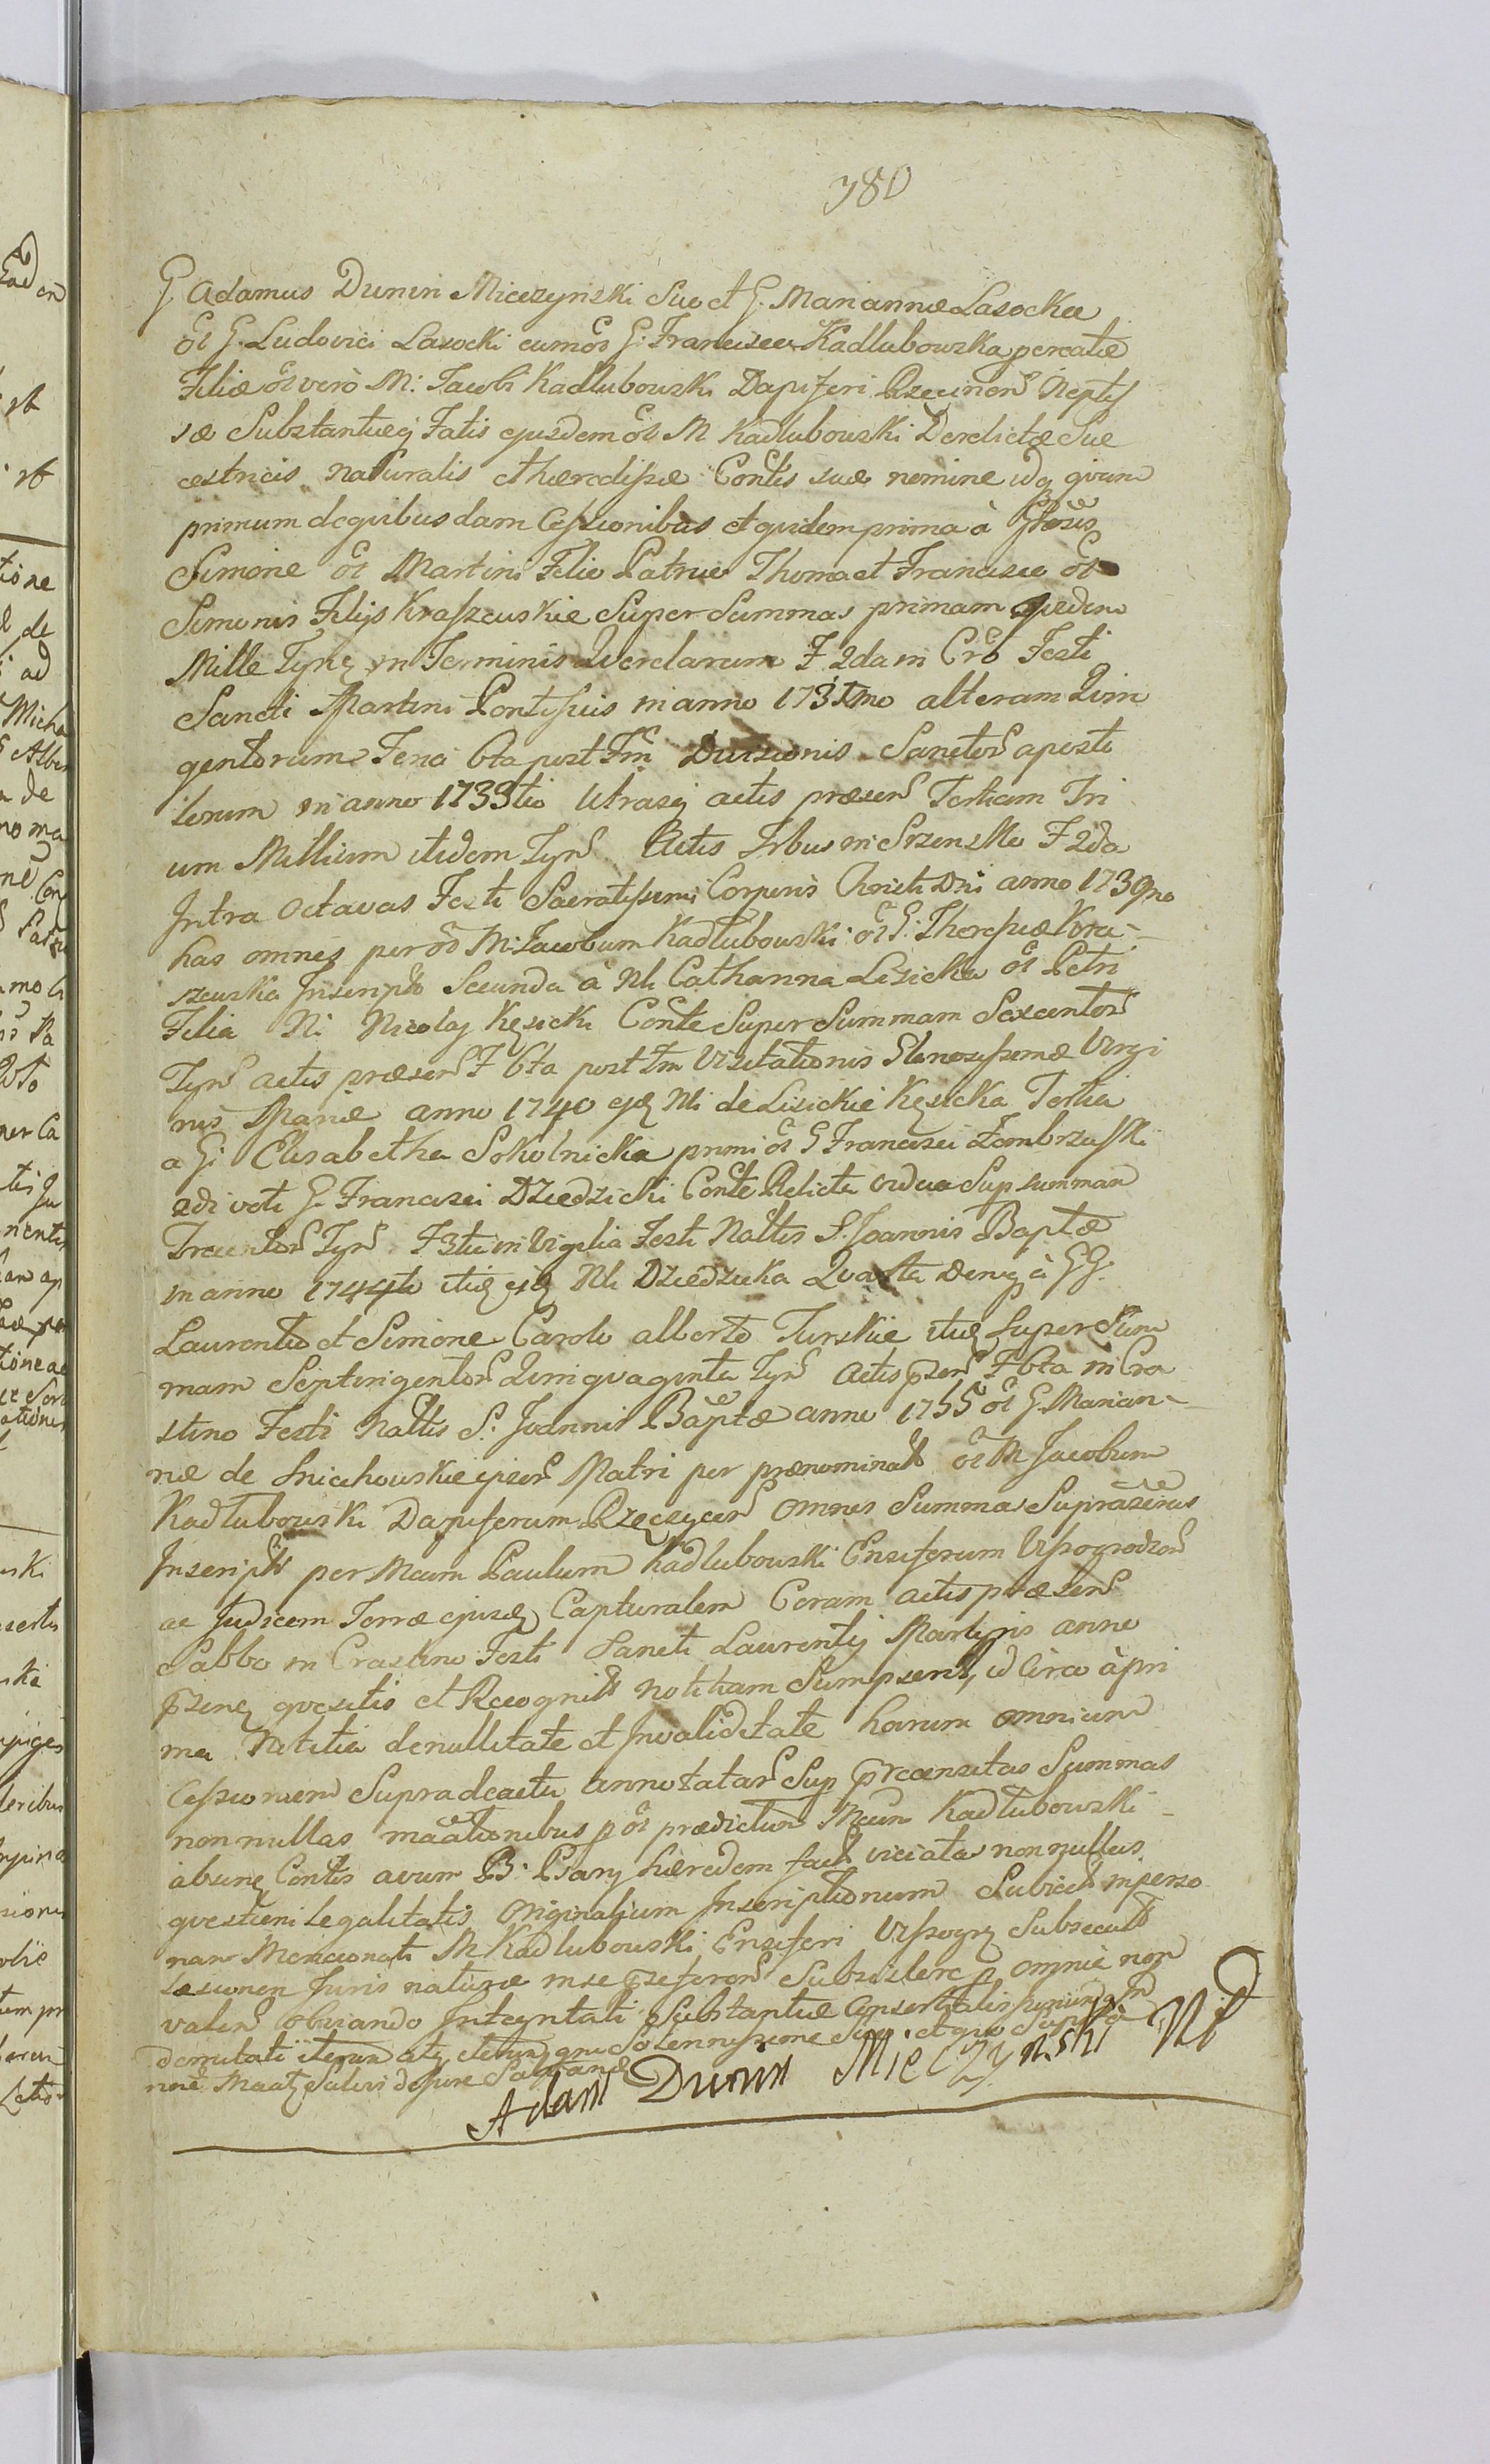 780
G Adamus Dunin Mieczynski Suo et G. Mariannæ Lasockee
ol G. Ludovici Lasocki cum G: Francisca Kadlubowska pereatæ
Filiæ ol vero M: Jacobi Kadlubowski Dapiferi Rzecinen Neptis
suæ Substantiæq Fatis ejusdem ol M Kadlubowski Derelictæ Suc
cestricis naturalis et hæredissæ Contis suæ nomine idq qvam
primum de qvibusdam Cessionibus et qvidem prima à
Simone ol Martini Filio Patruo Thoma et Francisco ol
Simonis Filijs Kraszewskie Super Summas primam qvidem
Mille Tynf in Terminis Qverelarum F 2da in Cro Festi
Sancti Martini Pontificis in anno 173 mo alteram Qvin
gentorum Feria 6ta post Fm Divisionis Sanctor aposto
lorum in anno 1733tio Utrasq actis præsen Tertiam Tri
um Millium itidem Tynf Actis Trbus in Srzensko F 2da
Intra Octavas Festi Sacratissimi Corporis Christi Dni anno 1739no
has omnes per M: Jacobum Kadlubowski ol G: Theresiæ Kra-
szewska Inscript Secunda à M Catharina Lisicka ol Petri
Filia M Nicolaj Kęsicki Conte Super Summam Sexcentor
Tynf actis præsen F 6ta post Fm Visitationis Gloriosissimæ Virgi
nis Mariæ anno 1740 ejq M de Lisickie Kęsicka Tertia
a G: Elisabetha Sokolnicka primi ol G Francisci Zambrzuski
2di voti G. Francisci Dziedzicki Conte Relicta vidua Sup summam
Trecentor Tynf F 3tia in Vigilia Festi Natlis S. Joannis Baptæ
in anno 1744to itid ejq M Dziedzicka Qvarta deniq à GG
Laurentio et Simone Carolo alberto Turskie itid Super Sum
mam Septingentor Qvinqvaginta Tynf actis pzen F 6ta in Cra
stino Festi Natlis S: Joannis Baptæ anno 1755 ol G. Marian-
næ de Sniechowskie ipsor Matri per prænominat ol M Jacobum
Kadlubowski Dapiferum Rzęczycen omnes Summas
Inscript per Mcum Paulum Kadlubowski Ensiferum Vissogroden
ac Judicem Terræ ejusq Capturalem Coram actis præsen
Sabbo in Crastino Festi Sancti Laurentij Martyris anno
qvæsitis et Recognit notitiam Sumpserit, id circo à pri
ma Notitia de nullitate et Invaliditate harum omnium
Cessionem Supra de actu annotatar Sup præcensitas Summas
non nullas p ol prædictum Mcum Kadlubowski
Contis avum hæredem fact viciatas non nullas
qvestioni Legalitatis Originalium Inscriptionum Subiect in perso
nam M Kadlubowski Ensiferi Vissogr Subsecut
Læsionem Juris naturæ in se Subsistere p omnia non
valen obviando Integritati Substantiæ
iterum atq iterum Solennissime
Salvis de Jure
Adam Dunin Mieczynski Mp